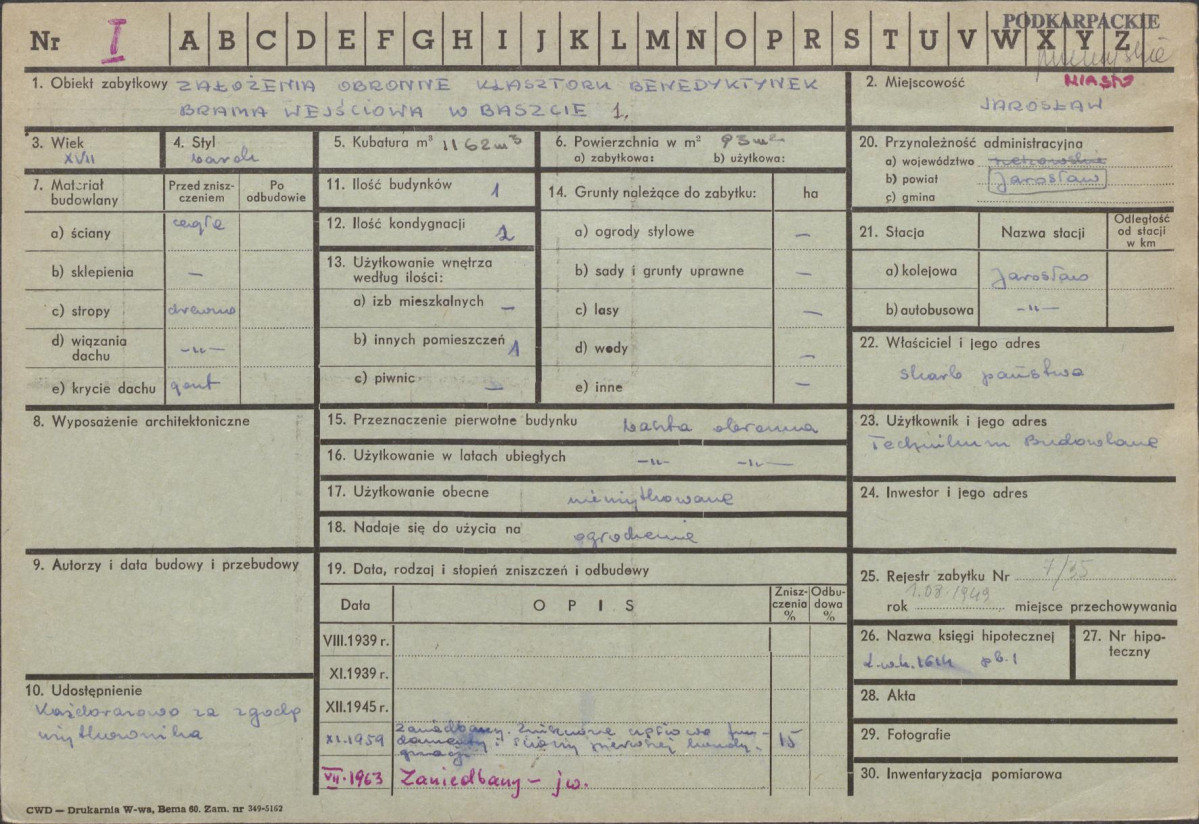 Nr I A B C D E F G H I J K L M N O P R S T U V W X Y Z
PODKARPACKIE
1. Obiekt zabytkowy ZAŁOŻENIA OBRONNE KLASZTORU BENEDYKTYNEK
BRAMA WEJŚCIOWA W BASZCIE 1.
2. Miejscowość MIASTO
JAROSŁAW
3. Wiek
XVII
4. Styl
barok
5. Kubatura m³ 1162 m³
6. Powierzchnia w m² 93 m²
a) zabytkowa: b) użytkowa:
20. Przynależność administracyjna
a) województwo rzeszowskie
b) powiat Jarosław
c) gmina
7. Materiał budowlany
Przed zniszczeniem
Po odbudowie
a) ściany cegła
b) sklepienia —
c) stropy drewno
d) wiązania dachu —„—
e) krycie dachu gont
11. Ilość budynków 1
12. Ilość kondygnacji 2
13. Użytkowanie wnętrza według ilości:
a) izb mieszkalnych —
b) innych pomieszczeń 1
c) piwnic —
14. Grunty należące do zabytku: ha
a) ogrody stylowe —
b) sady i grunty uprawne —
c) lasy —
d) wody —
e) inne —
21. Stacja Nazwa stacji Odległość od stacji w km
a) kolejowa Jarosław
b) autobusowa —„—
22. Właściciel i jego adres
skarb państwa
8. Wyposażenie architektoniczne
15. Przeznaczenie pierwotne budynku baszta obronna
16. Użytkowanie w latach ubiegłych —„— —„—
17. Użytkowanie obecne nieużytkowane
18. Nadaje się do użycia na ogrodzenie
23. Użytkownik i jego adres
Technikum Budowlane
24. Inwestor i jego adres
9. Autorzy i data budowy i przebudowy
19. Data, rodzaj i stopień zniszczeń i odbudowy
Data OPIS Zniszczenia % Odbudowa %
VIII.1939 r.
XI.1939 r.
XII.1945 r.
XI.1959 Zaniedbany. Zniszczone częściowo fun-
damenty i ściany pierwszej kondy-
gnacji 15
VII.1963 Zaniedbany – jw.
25. Rejestr zabytku Nr
rok 1.08.1949 miejsce przechowywania
26. Nazwa księgi hipotecznej
L.w.h. 1614 pb. 1
27. Nr hipoteczny
10. Udostępnienie
Każdorazowo za zgodą
użytkownika
28. Akta
29. Fotografie
30. Inwentaryzacja pomiarowa
CWD — Drukarnia W-wa, Bema 60. Zam. nr 349-5162